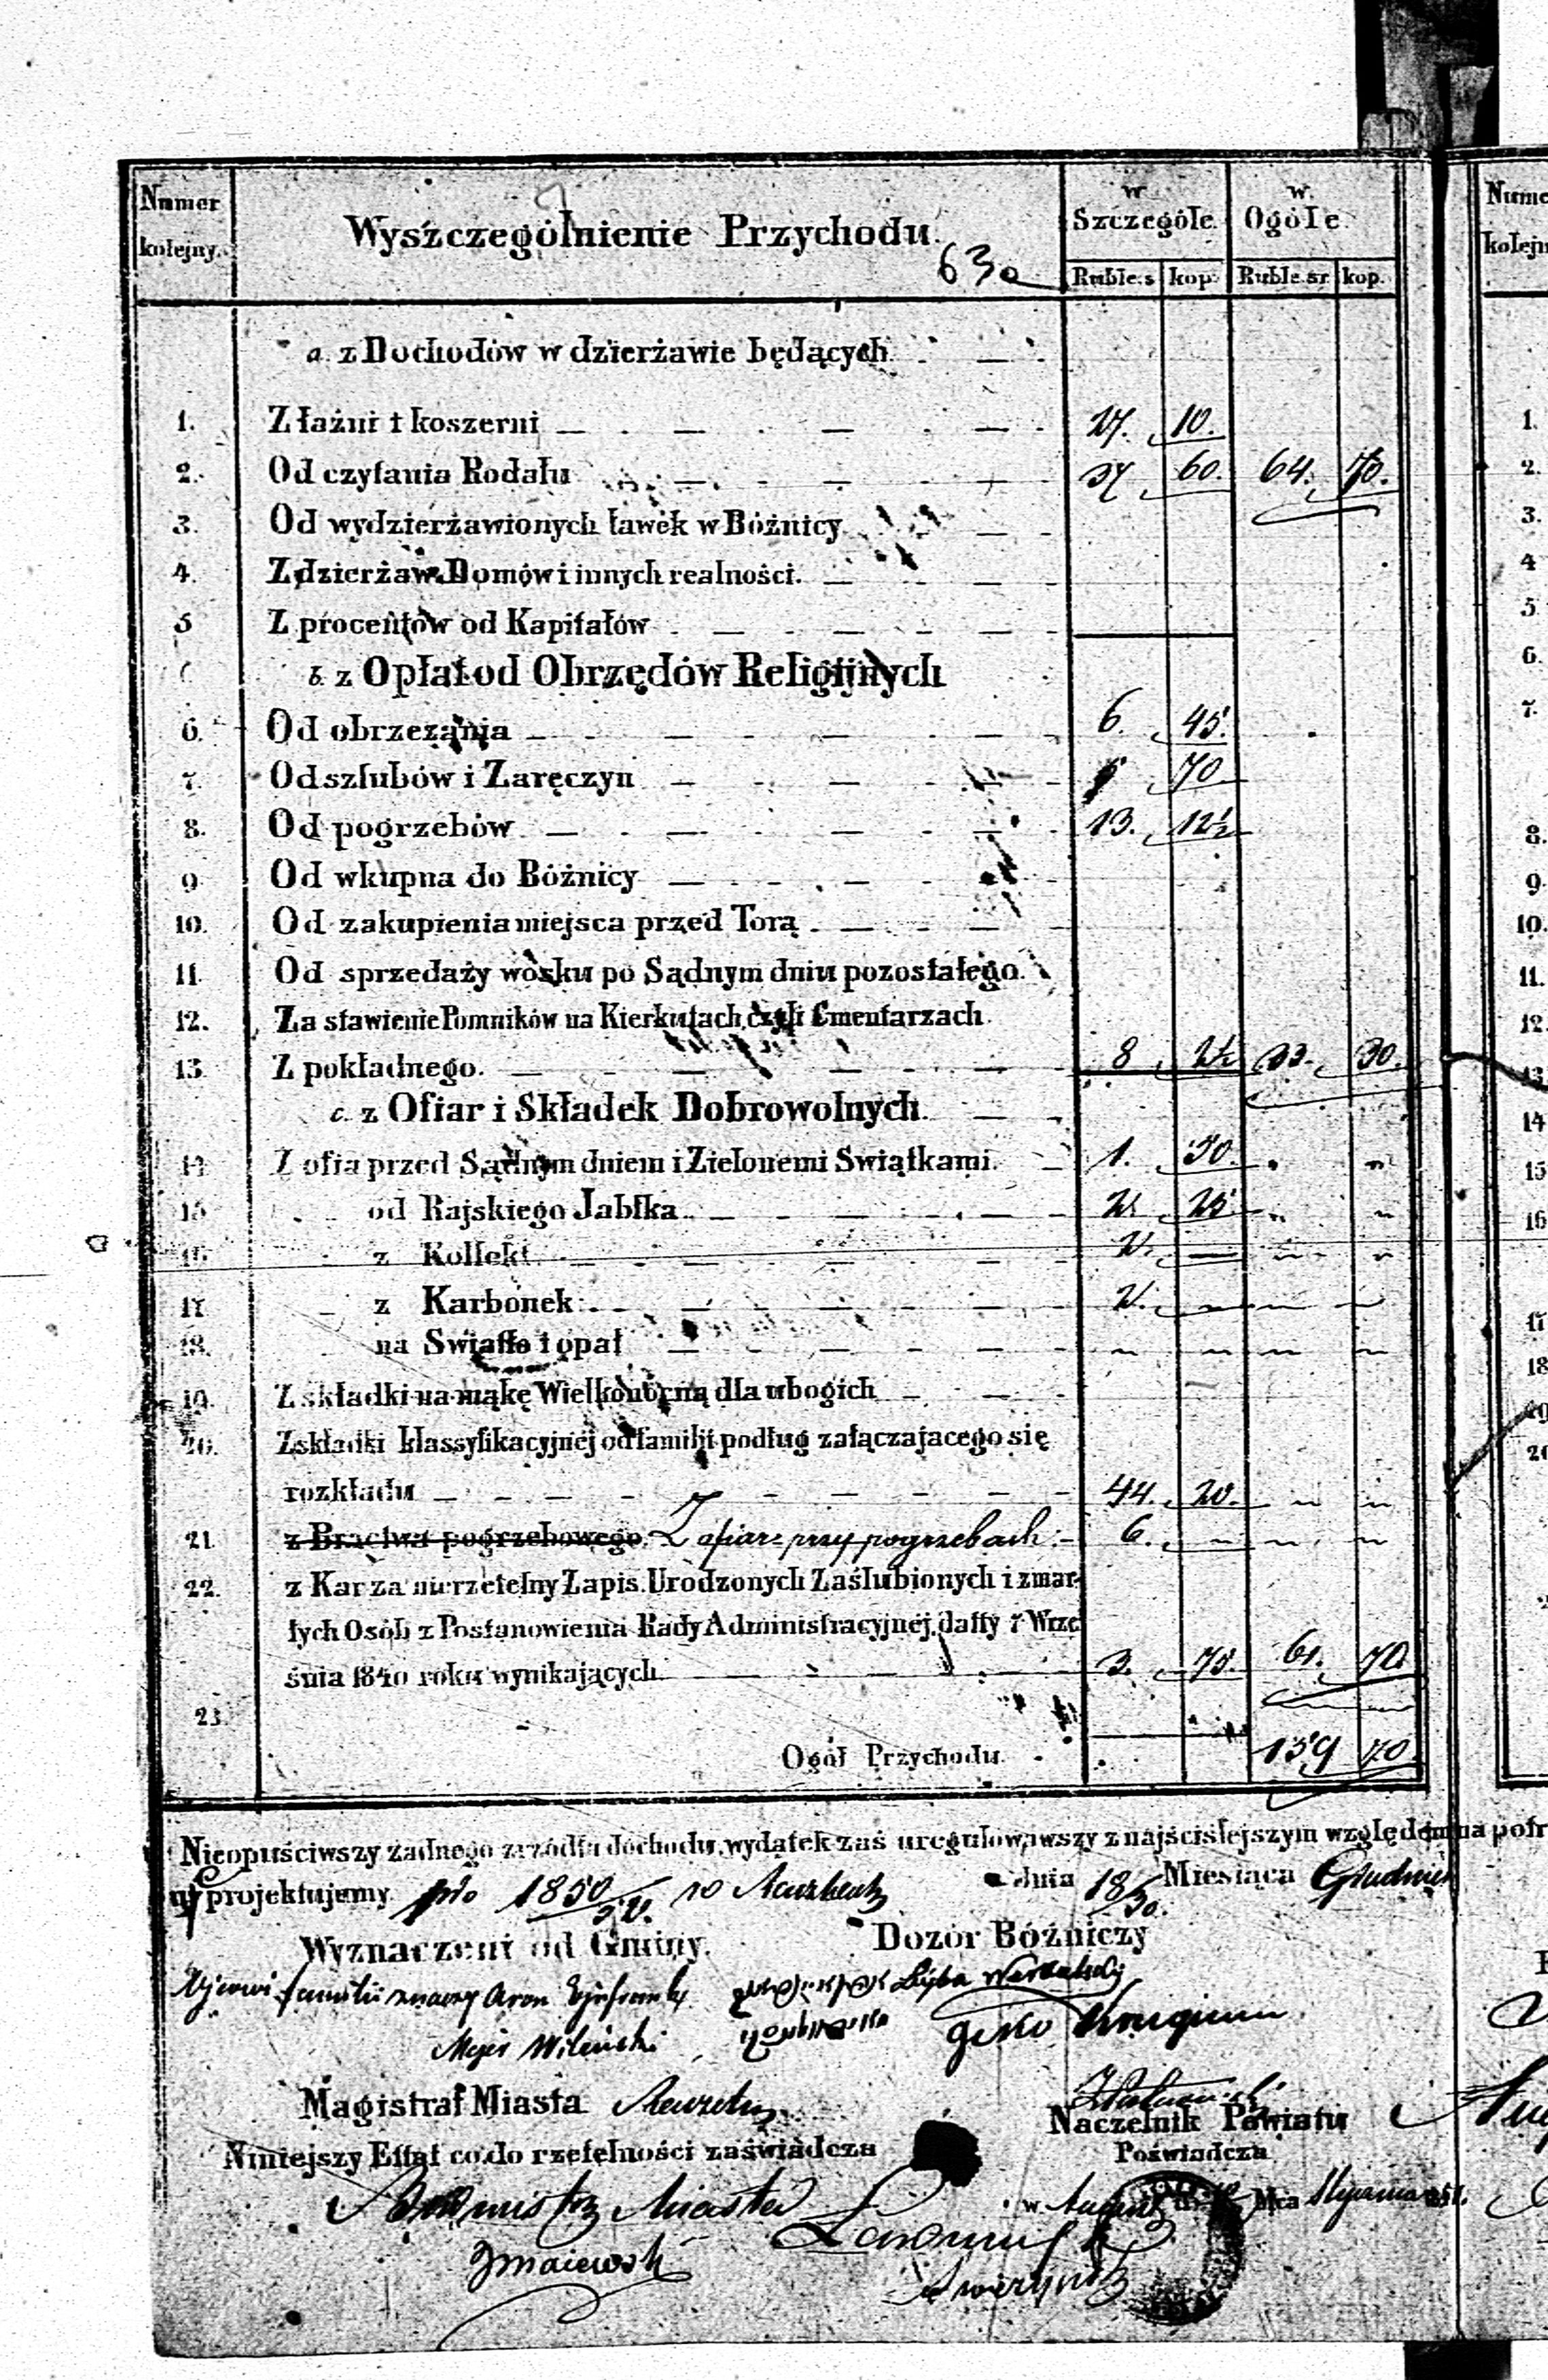 Numer kolejny.
Wyszczególnienie Przychodu.
w Szczególe.
w Ogóle
630
Ruble s kop. Ruble sr kop.
a. z Dochodów w dzierżawie będących
1. Z łaźni i koszerni 27. 10.
2. Od czytania Rodału 37 60. 64. 70.
3. Od wydzierżawionych ławek w Bóżnicy
4. Z dzierżaw Domów i innych realności.
5 Z procentów od Kapitałów
b. z Opłat od Obrzędów Religijnych
6. Od obrzezania 6. 45.
7. Od szlubów i Zaręczyn 5 70
8. Od pogrzebów 13. 12½
9 Od wkupna do Bóżnicy
10. Od zakupienia miejsca przed Torą
11. Od sprzedaży wosku po Sądnym dniu pozostałego.
12. Za stawienie Pomników na Kierkutach czyli Cmentarzach
13. Z pokładnego. 8 2½ 33. 30.
c. z Ofiar i Składek Dobrowolnych
14 Z ofia przed Sądnym dniem i Zielonemi Swiątkami. 1. 50
15 od Rajskiego Jabłka 2. 25
16. z Kollekt 2.
17 z Karbonek 2.
18. na Swiatło i opał
19. Z składki na mąkę Wielkonocną dla ubogich
20. Z składki klassyfikacyjnéj od familii podług załączajacego się
rozkładu 44. 20.
21. z Bractwa pogrzebowego Z ofiar przy pogrzebach 6.
22. z Kar za nierzetelny Zapis Urodzonych Zaślubionych i zmar-
łych Osób z Postanowienia Rady Administracyjnéj datty 7 Wrze
śnia 1840 roku wynikających 3. 75. 61. 70
23.
Ogół Przychodu 159 70
Nieopuściwszy żadnego zrzódła dochodu, wydatek zaś uregulowawszy z najściślejszym względem na potr
projektujemy. 1850/52. w dnia 18/30. Miesiąca Grudnia
Wyznaczeni od Gminy.
Dozór Bóżniczy
Ojcowi familii Aron
Leyba
Mejer Wileński
Magistrat Miasta
Naczelnik Powiatu
Niniejszy Ettat co do rzetelności zaświadcza
Poświadcza
Burmistrz Miasta
w Mca Stycznia
Numer
kolejn
1.
2.
3.
4
5
6.
7.
8.
9
10.
11.
12
13
14
15
16
17
18
19
20